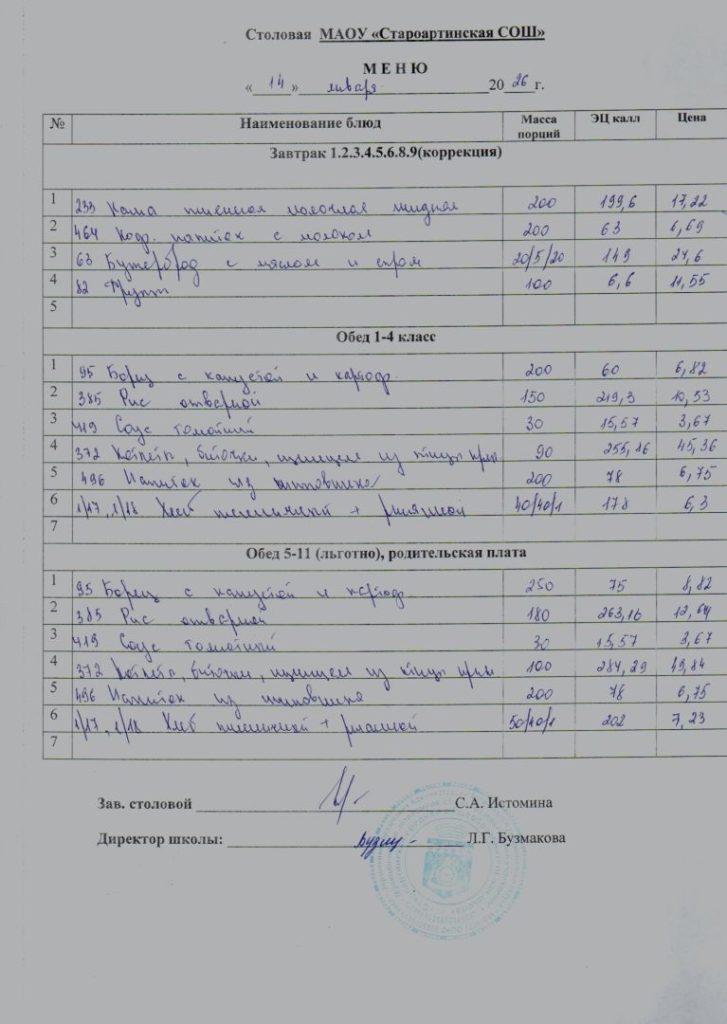 Столовая МАОУ «Староартинская СОШ»
М Е Н Ю
«14» января 2026 г.
№ Наименование блюд Масса порций ЭЦ калл Цена
Завтрак 1.2.3.4.5.6.8.9(коррекция)
1 233 Каша пшенная молочная жидкая 200 199,6 17,22
2 464 Коф. напиток с молоком 200 63 6,69
3 63 Бутерброд с маслом и сыром 20/5/20 149 27,6
4 82 Фрукт 100 6,6 11,55
5
Обед 1-4 класс
1 95 Борщ с капустой и картоф. 200 60 6,82
2 385 Рис отварной 150 219,3 10,53
3 419 Соус томатный 30 15,57 3,67
4 372 Котлеты, биточки, шницели из птицы 90 255,86 45,36
5 496 Напиток из шиповника 200 78 6,75
6 1/17, 1/18 Хлеб пшеничный + ржаной 40/40/1 178 6,3
7
Обед 5-11 (льготно), родительская плата
1 95 Борщ с капустой и картоф 250 75 8,82
2 385 Рис отварной 180 263,16 12,64
3 419 Соус томатный 30 15,57 3,67
4 372 Котлеты, биточки, шницели из птицы 100 284,29 49,84
5 496 Напиток из шиповника 200 78 6,75
6 1/17, 1/18 Хлеб пшеничный + ржаной 50/40/1 202 7,23
7
Зав. столовой С.А. Истомина
Директор школы: Л.Г. Бузмакова